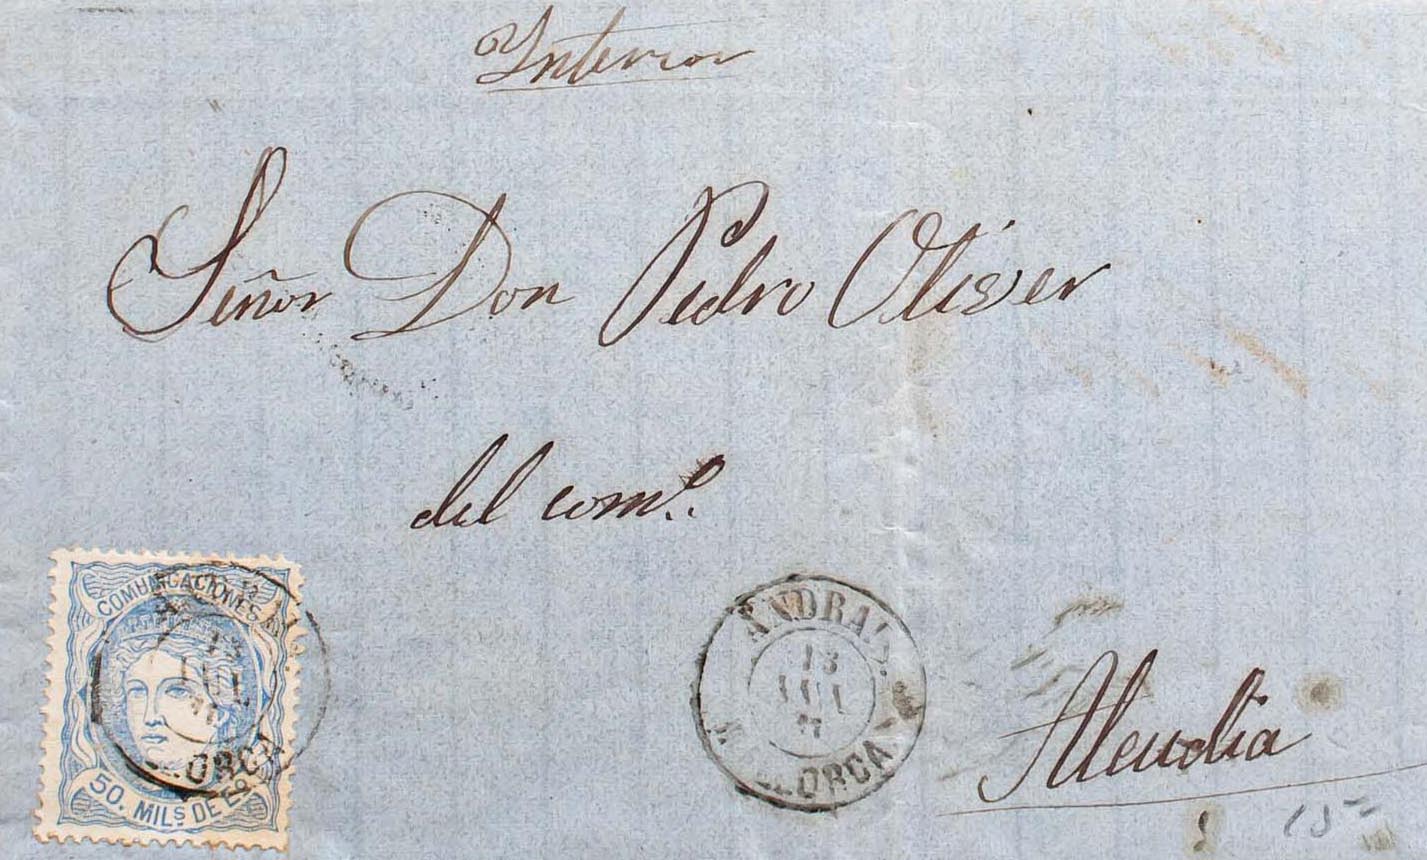 Ynterior
Señor Don Pedro Oliver
del com.º
COMUNICACIONES
50. MILS DE E
ORCA
ANDRA
13
JUL
LORCA
Alcudia